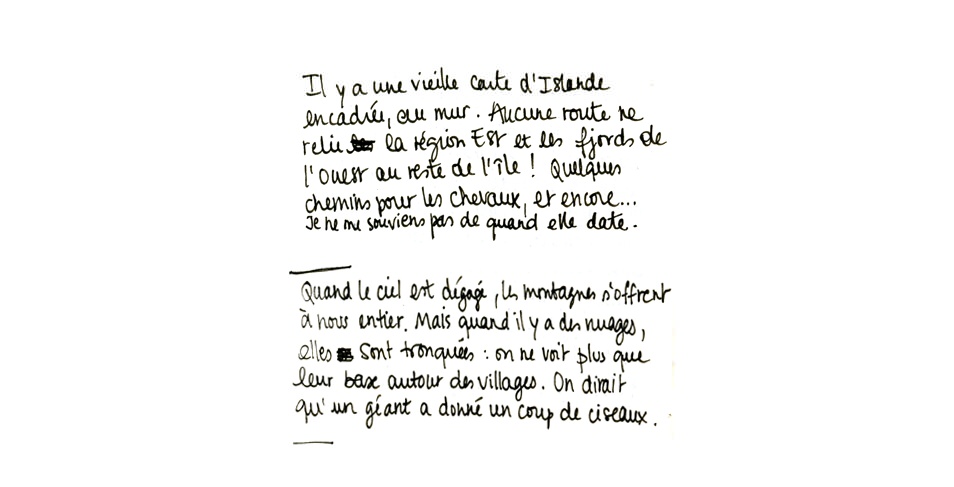 Il y a une vieille carte d'Islande
encadrée, au mur. Aucune route ne
relie la région Est et les fjords de
l'Ouest au reste de l'île ! Quelques
chemins pour les chevaux, et encore...
Je ne me souviens pas de quand elle date.
Quand le ciel est dégagé, les montagnes s'offrent
à nous entier. Mais quand il y a des nuages,
elles sont tronquées : on ne voit plus que
leur base autour des villages. On dirait
qu'un géant a donné un coup de ciseaux.